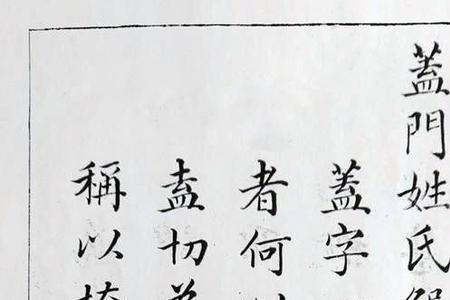 蓋門姓氏
蓋字
者何
盍切
稱以